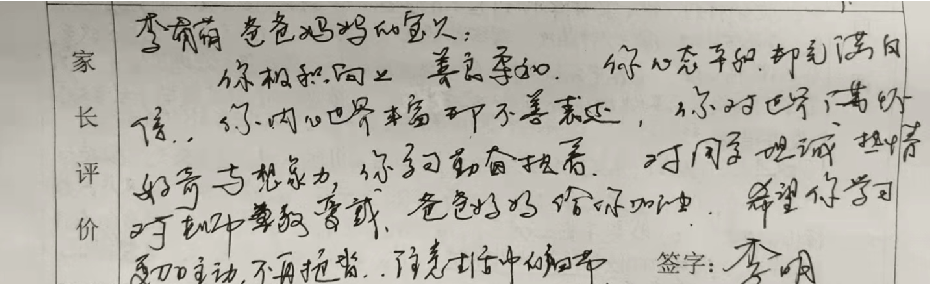 家长评价
李萌萌爸爸妈妈的宝贝：
你积极向上 善良柔和. 你心态平和.却充满自
信.. 你内心世界丰富却不善表达，你对世界满怀
好奇与想象力，你学习勤奋执着. 对同学坦诚 热情
对老师尊敬爱戴. 爸爸妈妈给你加油. 希望你学习
更加主动,不再拖沓..注意生活中的细节
签字:李明